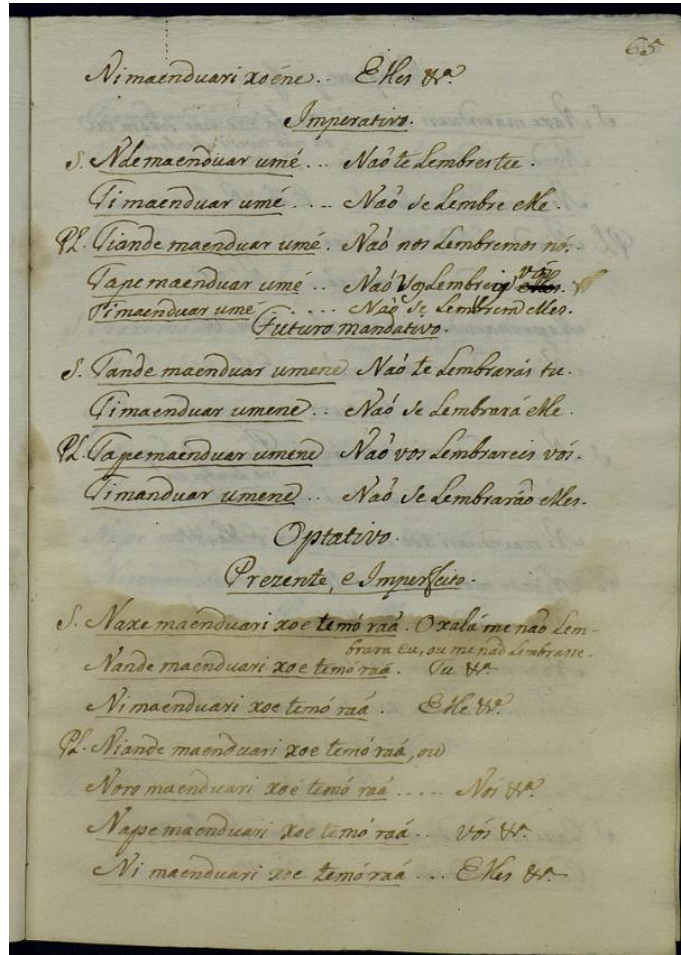 65
Nimaenduari xoéne.. Elles &ª
Imperativo.
S. Ndemaenduar umé... Naó te Lembres tu.
Timaenduar umé.... Naó se Lembre elle.
Pl. Tiande maenduar umé. Naó nos Lembremos nós.
Tape maenduar umé.. Naó vos Lembreis vós.
Timaenduar umé.... Naó se Lembrem elles.
Futuro mandativo.
S. Tande maenduar umene Naó te Lembrarás tu.
Timaenduar umene.. Naó se Lembrará elle.
Pl. Tapemaenduar umene Naó vos Lembrareis vós.
Timanduar umene.. Naó se Lembraráo elles.
Optativo.
Prezente, e Imperfeito.
S. Naxe maenduari xoe temó raá. Oxalá me naõ Lem-
brara eu, ou me naõ Lembrasse.
Nande maenduari xoe temó raá. Tu &ª
Nimaenduari xoe temó raá. Elle &ª
Pl. Niande maenduari xoe temó raá, ou
Noro maenduari xoé temó raá..... Nós &ª
Nape maenduari xoe temó raá.. vós &ª
Ni maenduari xoe temó raá... Elles &ª